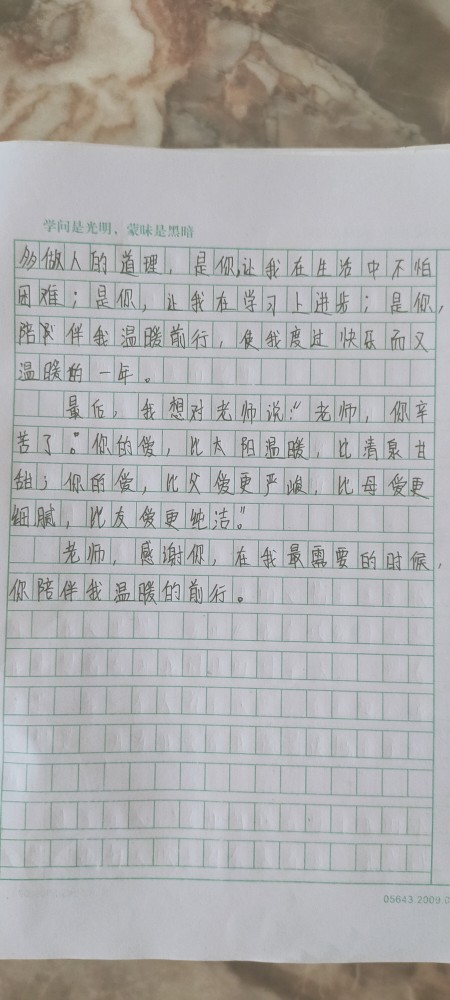 学问是光明，蒙昧是黑暗
多做人的道理，是你，让我在生活中不怕
困难；是你，让我在学习上进步；是你，
陪伴我温暖前行，使我度过快乐而又
温暖的一年。
最后，我想对老师说：“老师，你辛
苦了。”你的爱，比太阳温暖，比清泉甘
甜；你的爱，比父爱更严峻，比母爱更
细腻，比友爱更纯洁。”
老师，感谢你，在我最需要的时候，
你陪伴我温暖的前行。
05643.2009.0